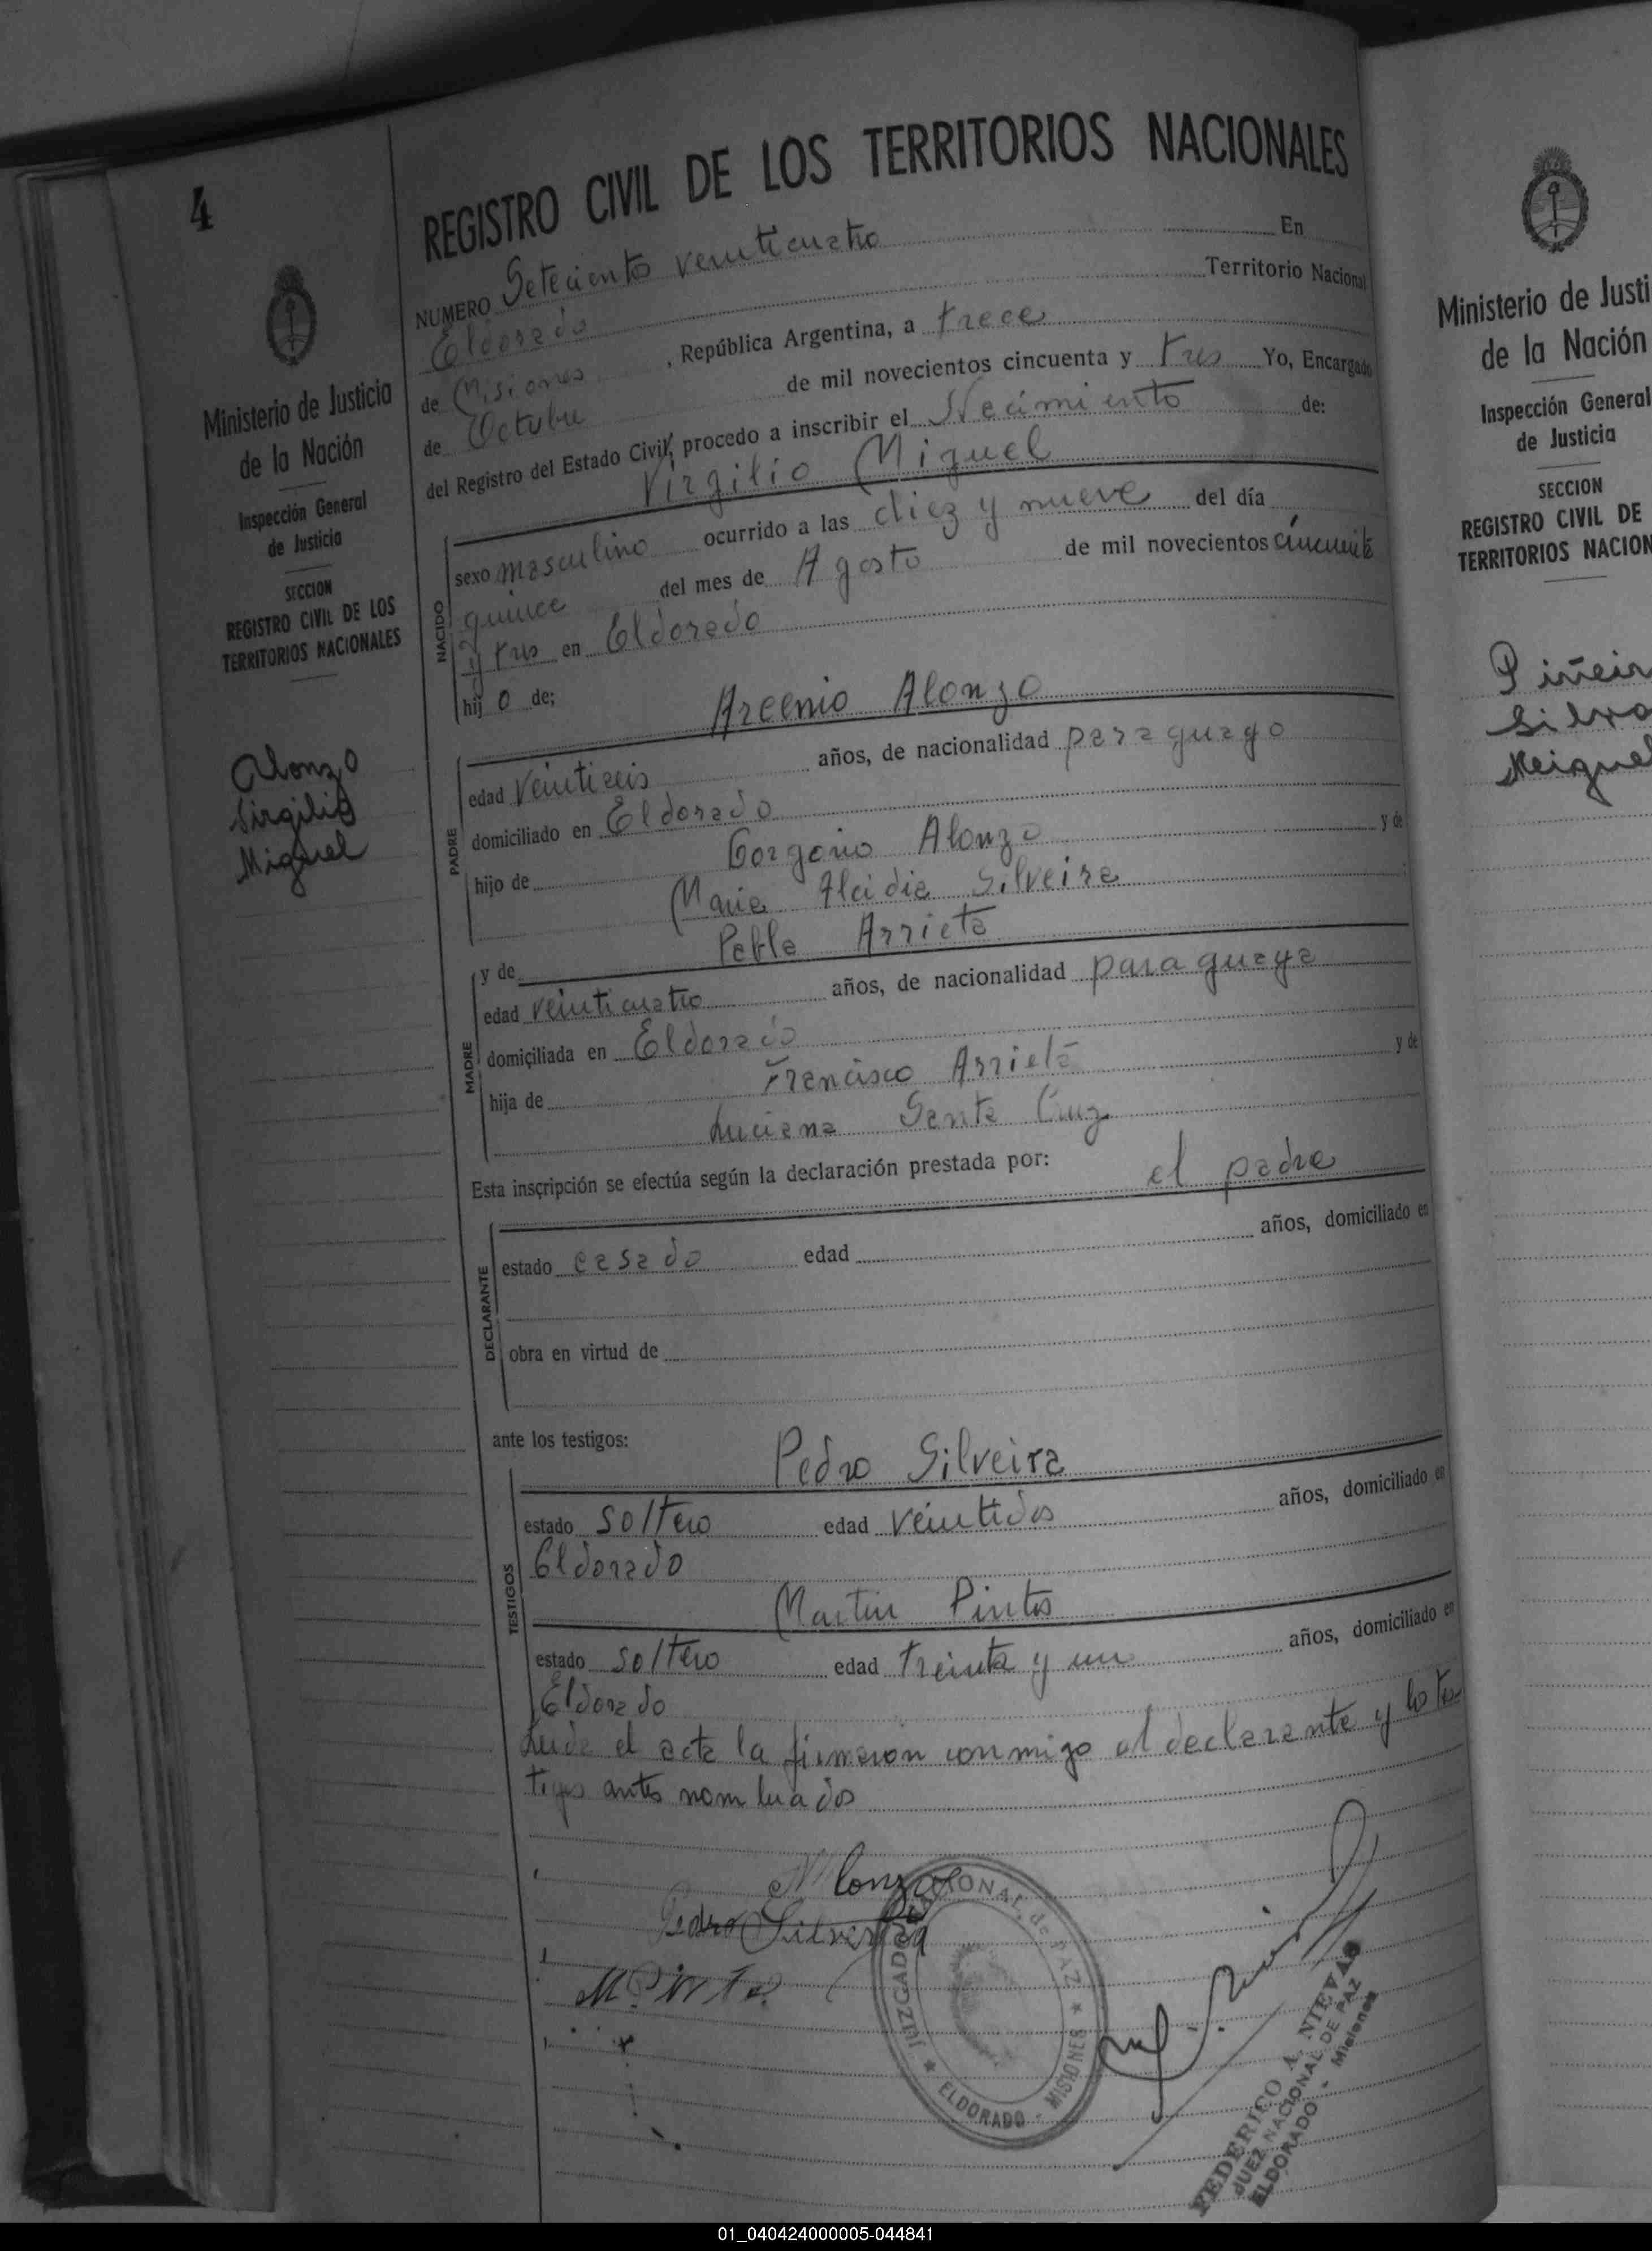 4
REGISTRO CIVIL DE LOS TERRITORIOS NACIONALES
Ministerio de Justicia
de la Nación
Inspección General
de Justicia
SECCION
REGISTRO CIVIL DE LOS
TERRITORIOS NACIONALES
Alonzo
Virgilio
Miguel
NUMERO Seteciento veinticuatro En
Eldorado Territorio Nacional
de Misiones, República Argentina, a trece
de Octubre de mil novecientos cincuenta y tres Yo, Encargado
del Registro del Estado Civil, procedo a inscribir el Nacimiento de:
Virgilio Miguel
NACIDO
sexo masculino ocurrido a las diez y nueve del día
quince del mes de Agosto de mil novecientos cincuenta
y tres en Eldorado
hijo de;
Arcenio Alonzo
PADRE
edad veintiseis años, de nacionalidad paraguayo
domiciliado en Eldorado
hijo de Gorgonio Alonzo y de
Maria Alcidia Silveira
y de Pabla Arrieta
MADRE
edad veinticuatro años, de nacionalidad paraguaya
domiciliada en Eldorado
hija de Francisco Arrieta y de
Luciana Santa Cruz
Esta inscripción se efectúa según la declaración prestada por:
el padre
DECLARANTE
estado casado edad años, domiciliado en
obra en virtud de
ante los testigos:
Pedro Silveira
TESTIGOS
estado soltero edad veintidos años, domiciliado en
Eldorado
Martin Pintos
estado soltero edad treinta y un años, domiciliado en
Eldorado
Leida el acta la firmaron conmigo el declarante y lo tes
tigos antes nombrados
Alonzo
Pedro Silveira
M Pinto
JUZGADO NACIONAL de PAZ
ELDORADO - MISIONES
FEDERICO A. NIEVAS
JUEZ NACIONAL DE PAZ
ELDORADO - Misiones
Ministerio de Justi
de la Nación
Inspección General
de Justicia
SECCION
REGISTRO CIVIL DE
TERRITORIOS NACION
Piñeir
Silva
Miguel
01_040424000005-044841